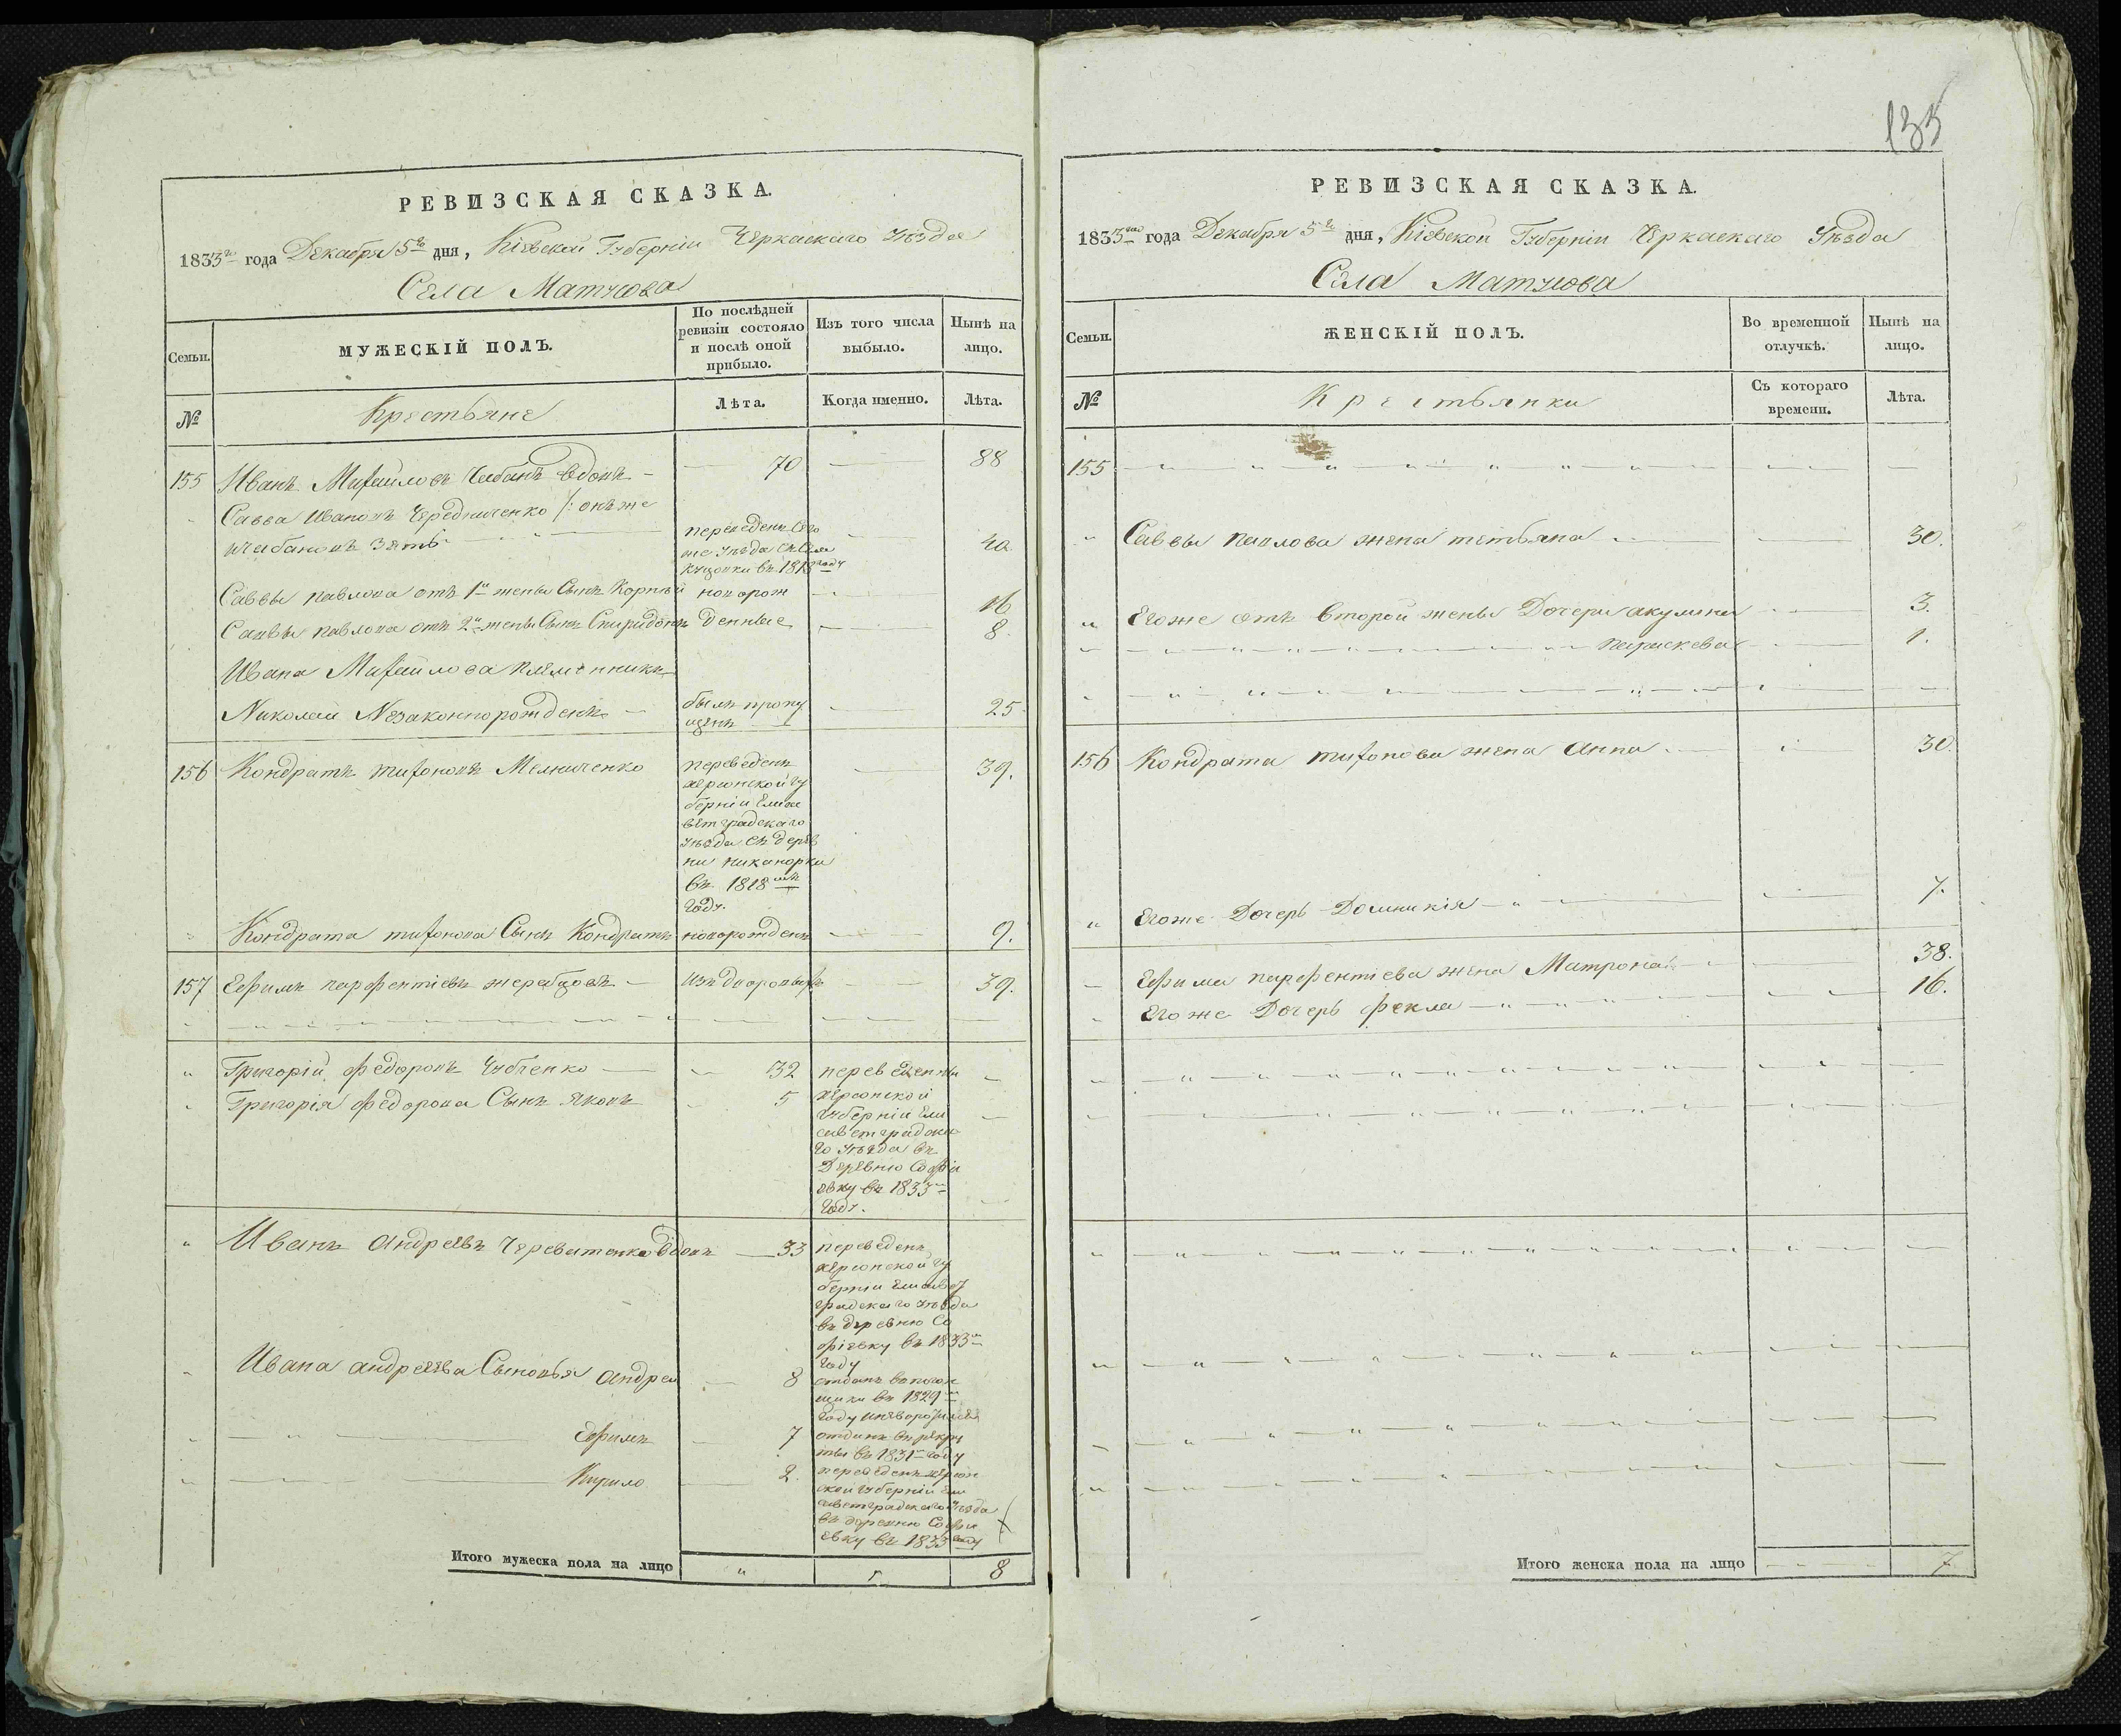 РЕВИЗСКАЯ СКАЗКА.
1833го года Декабря 5го дня, Кіевской Губерніи Черкаскаго Уѣзда
Села Матусова
Семьи.
МУЖЕСКІЙ ПОЛЪ.
По послѣдней
ревизіи состояло
и послѣ оной
прибыло.
Изъ того числа
выбыло.
Нынѣ на
лицо.
№
Крестьяне
Лѣта.
Когда именно.
Лѣта.
155 Иванъ Михайловъ Чабанъ вдовъ — 70 — 88
Савва Ивановъ Чередниченко /: онъ же
Чабановъ Зять
переведенъ сего
же уѣзда съ Села
в 1818 году
— 40
Саввы Павлова отъ 1й жены Сынъ Корнѣй новорож — 16
Саввы Павлова отъ 2й жены Сынъ Спиридонъ денные — 8.
Ивана Михайлова племянникъ
Николай Незаконнорожденъ — былъ пропу
щенъ — 25
156 Кондратъ Тихоновъ Мельниченко
переведенъ
Херсонской гу
берніи Елиса
ветградскаго
уѣзда съ дерев
ни Никанорки
въ 1818мъ
году.
— 39.
Кондрата Тихонова Сынъ Кондратъ новорожденъ — 9.
157 Ефимъ Парфентіевъ Жеребцовъ — изъ дворовыхъ — 39.
" Григорій Федоровъ Чубченко — 32
Григорія Федорова Сынъ Яковъ 5
переведенны
Херсонской
губерніи Ели
саветградска
го уѣзда въ
Деревню Софи
евку въ 1833м
году.
" Иванъ Андреевъ Череватенко Вдовъ — 33
переведенъ
Херсонской гу
берніи Елисавет
градскаго уѣзда
въ деревню Со
фіевку въ 1833м
году
Ивана Андреева Сыновья Андрей — 8
отданъ в погон
щики въ 1829м
году
Ефимъ — 7
отданъ въ рекру
ты въ 1831м году
Кирило — 2.
переведенъ Херсон
ской губерніи Ели
саветградскаго уѣзда
въ деревню Софи
евку въ 1833 году
Итого мужеска пола на лицо " " 8
135
РЕВИЗСКАЯ СКАЗКА.
1833го года Декабря 5го дня, Кіевской Губерніи Черкаскаго Уѣзда
Села Матусова
Семьи.
ЖЕНСКІЙ ПОЛЪ.
Во временной
отлучкѣ.
Нынѣ на
лицо.
№
Крестьянки
Съ котораго
времени.
Лѣта.
155
" Саввы Павлова жена Тетьяна — 30.
" Егоже отъ Второй жены Дочери Акулина — 3.
Параскева — 1.
156 Кондрата Тихонова жена Анна — 30.
" Егоже Дочерь Домникія — 7.
Ефима Парфентіева жена Матрона — 38.
Егоже Дочерь Фекла — 16.
Итого женска пола на лицо — 7